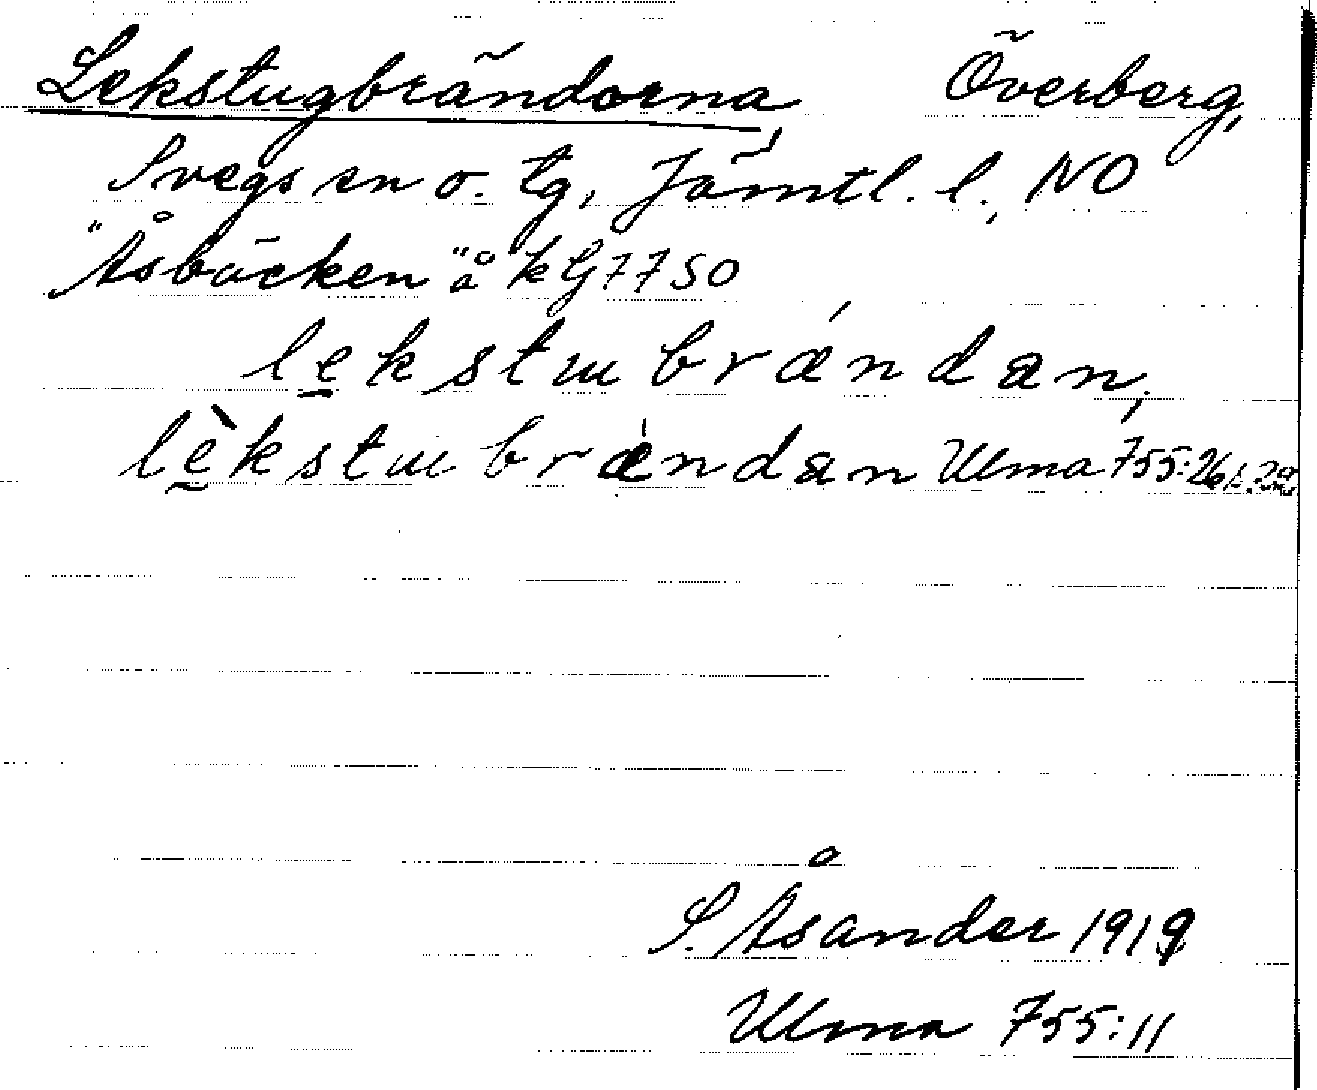 Lekstugbrändorna, Överberg,
Svegs sn o. tg, Jämtl. l., NO
"Åsbäcken" å kG7750
lekstuubrǽndan,
lèkstuubrǽndan Ulma 755:26
S. Åsander 1919
Ulma 755:11